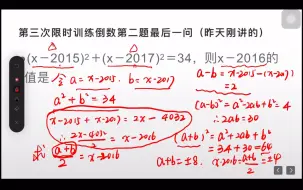 第三次限时训练倒数第二题最后一问（昨天刚讲的）
(x－2015)²＋(x－2017)²＝34，则x－2016的
值是
令 a = x-2015. b = x-2017
a² + b² = 34
x-2015 + x-2017 = 2x - 4032
∴ 2x-4032 / 2 = x-2016
求 a+b / 2 = x-2016
a-b = x-2015-(x-2017)
=2
(a-b)² = a²-2ab+b² = 4
∴ 2ab = 30
(a+b)² = a²+2ab+b²
= 34+30 = 64
a+b = ±8. x-2016 = a+b / 2 = ±4